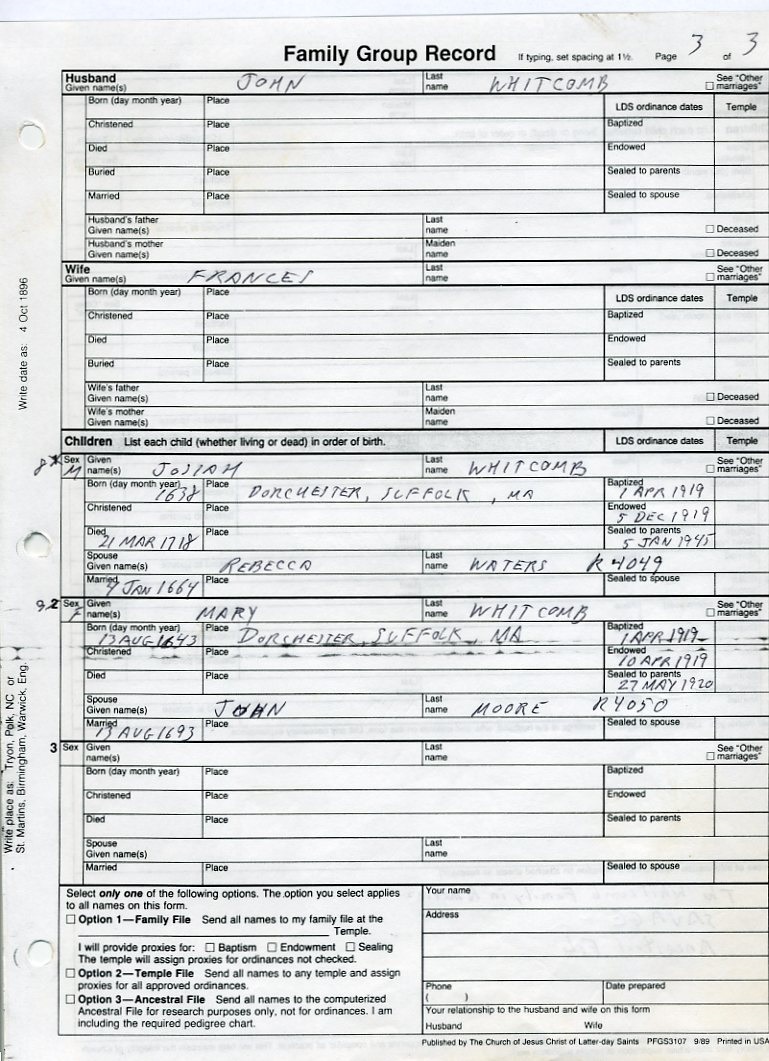 Family Group Record If typing, set spacing at 1½. Page 3 of 3
Husband Given name(s) JOHN Last name WHITCOMB See "Other marriages"
Born (day month year) Place LDS ordinance dates Temple
Christened Place Baptized
Died Place Endowed
Buried Place Sealed to parents
Married Place Sealed to spouse
Husband's father Given name(s) Last name Deceased
Husband's mother Given name(s) Maiden name Deceased
Wife Given name(s) FRANCES Last name See "Other marriages"
Born (day month year) Place LDS ordinance dates Temple
Christened Place Baptized
Died Place Endowed
Buried Place Sealed to parents
Wife's father Given name(s) Last name Deceased
Wife's mother Given name(s) Maiden name Deceased
Children List each child (whether living or dead) in order of birth. LDS ordinance dates Temple
8 1 Sex M Given name(s) JOSIAH Last name WHITCOMB See "Other marriages"
Born (day month year) 1638 Place DORCHESTER, SUFFOLK, MA Baptized 1 APR 1919
Christened Place Endowed 5 DEC 1919
Died 21 MAR 1718 Place Sealed to parents 5 JAN 1945
Spouse Given name(s) REBECCA Last name WATERS R4049
Married 4 JAN 1664 Place Sealed to spouse
9 2 Sex F Given name(s) MARY Last name WHITCOMB See "Other marriages"
Born (day month year) 13 AUG 1643 Place DORCHESTER, SUFFOLK, MA Baptized 1 APR 1919
Christened Place Endowed 10 APR 1919
Died Place Sealed to parents 27 MAY 1920
Spouse Given name(s) JOHN Last name MOORE R4050
Married 13 AUG 1693 Place Sealed to spouse
3 Sex Given name(s) Last name See "Other marriages"
Born (day month year) Place Baptized
Christened Place Endowed
Died Place Sealed to parents
Spouse Given name(s) Last name
Married Place Sealed to spouse
Select only one of the following options. The option you select applies
to all names on this form.
Option 1—Family File Send all names to my family file at the
Temple.
I will provide proxies for: Baptism Endowment Sealing
The temple will assign proxies for ordinances not checked.
Option 2—Temple File Send all names to any temple and assign
proxies for all approved ordinances.
Option 3—Ancestral File Send all names to the computerized
Ancestral File for research purposes only, not for ordinances. I am
including the required pedigree chart.
Your name
Address
Phone ( ) Date prepared
Your relationship to the husband and wife on this form
Husband Wife
Published by The Church of Jesus Christ of Latter-day Saints PFGS3107 9/89 Printed in USA
Write date as: 4 Oct 1896
Write place as: Tryon, Polk, NC or
St. Martins, Birmingham, Warwick, Eng.